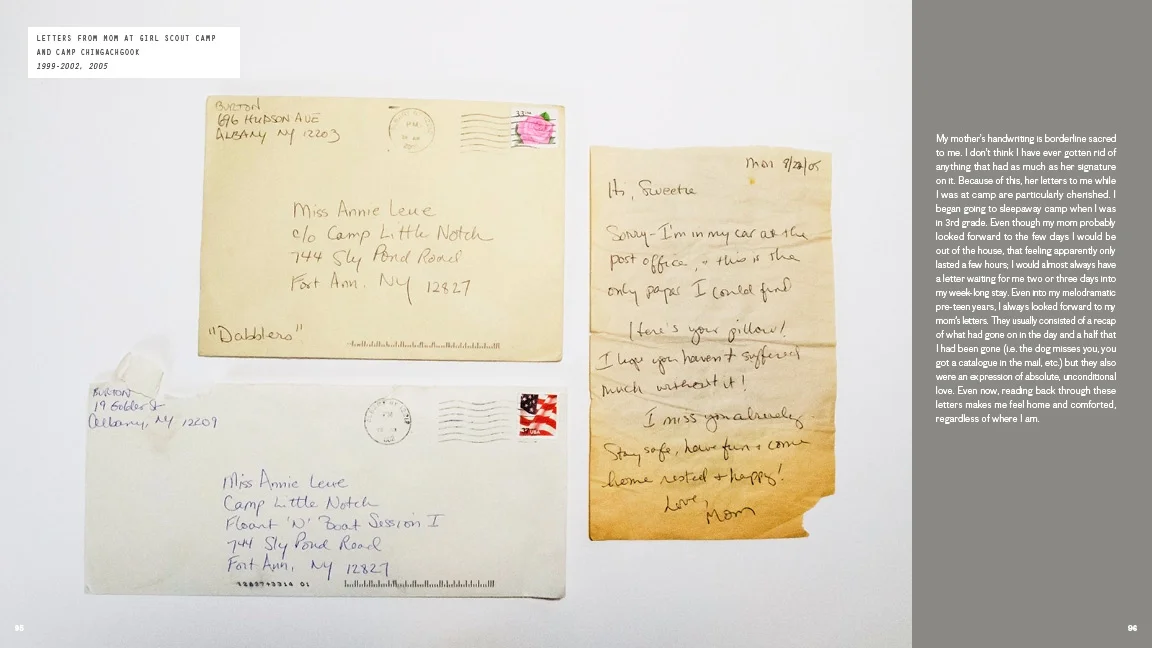 LETTERS FROM MOM AT GIRL SCOUT CAMP
AND CAMP CHINGACHGOOK
1999-2002, 2005
BURTON
696 HUDSON AVE
ALBANY NY 12203
33
Miss Annie Leue
c/o Camp Little Notch
744 Sly Pond Road
Fort Ann, NY 12827
"Dabblers"
BURTON
19 Golder St
Albany, NY 12209
PM
Miss Annie Leue
Camp Little Notch
Float 'N' Boat Session I
744 Sly Pond Road
Fort Ann, NY 12827
12827+3314 01
Mon 8/22/05
Hi, Sweetie
Sorry - I'm in my car at the
post office, + this is the
only paper I could find
Here's your pillow!
I hope you haven't suffered
much without it!
I miss you already.
Stay safe, have fun + come
home rested + happy!
Love,
Mom
My mother's handwriting is borderline sacred
to me. I don't think I have ever gotten rid of
anything that had as much as her signature
on it. Because of this, her letters to me while
I was at camp are particularly cherished. I
began going to sleepaway camp when I was
in 3rd grade. Even though my mom probably
looked forward to the few days I would be
out of the house, that feeling apparently only
lasted a few hours; I would almost always have
a letter waiting for me two or three days into
my week-long stay. Even into my melodramatic
pre-teen years, I always looked forward to my
mom's letters. They usually consisted of a recap
of what had gone on in the day and a half that
I had been gone (i.e. the dog misses you, you
got a catalogue in the mail, etc.) but they also
were an expression of absolute, unconditional
love. Even now, reading back through these
letters makes me feel home and comforted,
regardless of where I am.
95
96